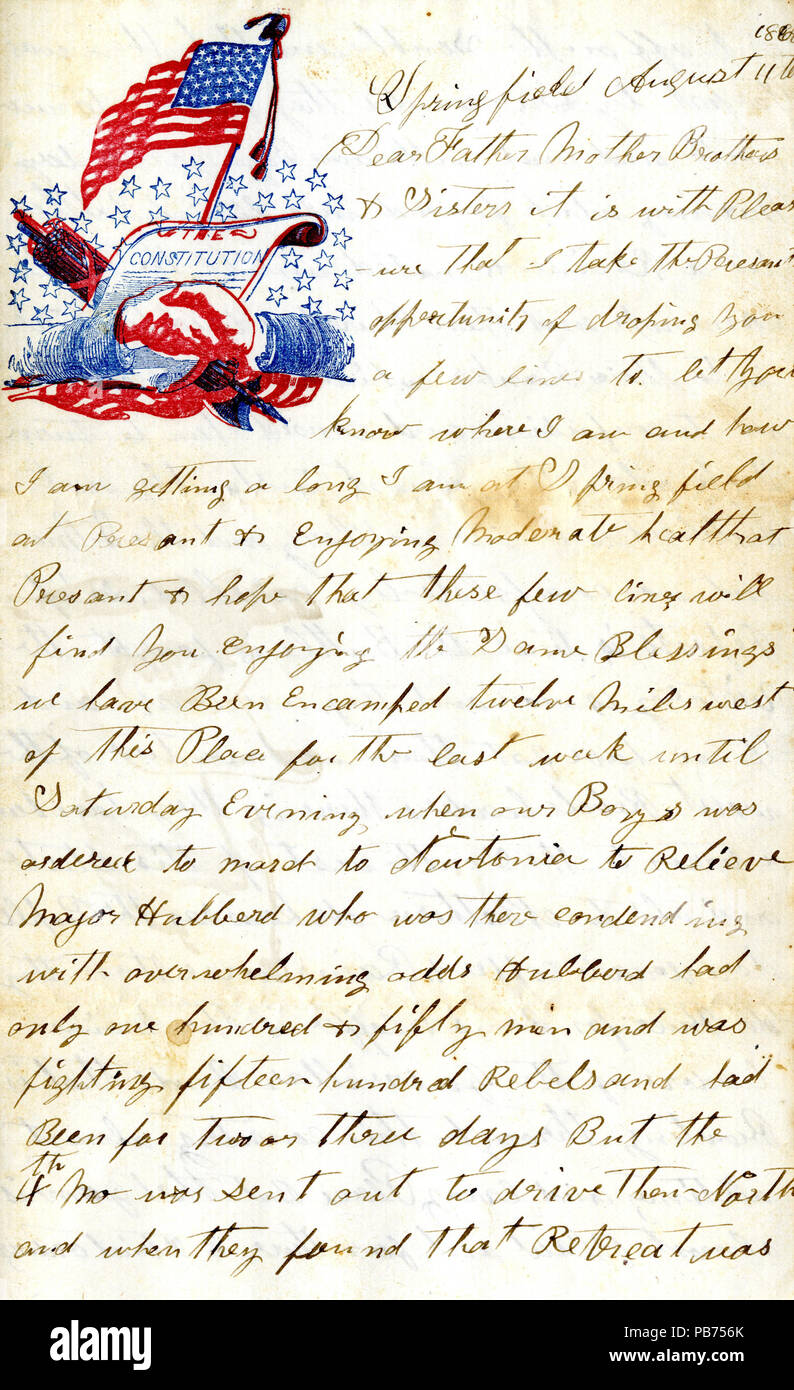 Springfield August 11th
Dear Father Mother Brothers
& Sisters it is with Pleas
-ure that I take the Presant
oppertunity of droping You
a few lines to let You
know where I am and how
I am getting a long I am at Springfield
at Presant & Enjoying Moderate health at
Presant & hope that these few lines will
find You Enjoying the Same Blessings
we have Been Encamped twelve Miles west
of this Place for the last week until
Saturday Evening when our Boys was
ordered to march to Newtonia to Relieve
Major Hubberd who was there condending
with overwhelming odds Hubberd had
only one hundred & fifty men and was
fighting fifteen hundred Rebels and had
Been for two or three days But the
4th Mo was sent out to drive them North
and when they found that Retreat was
THE
CONSTITUTION
alamy
Image ID: PB756K
www.alamy.com